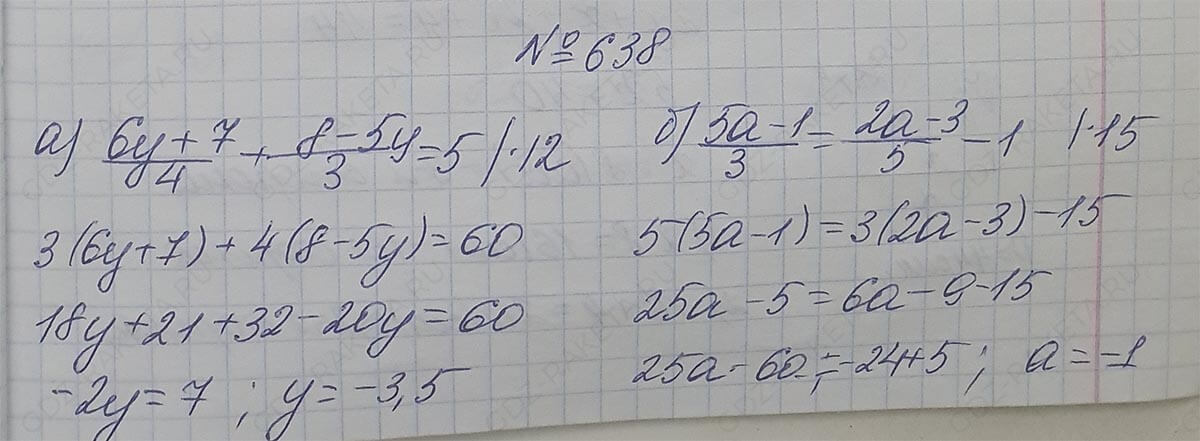 №638
а) (6y+7)/4 + (8-5y)/3 = 5 |·12
3(6y+7)+4(8-5y)=60
18y+21+32-20y=60
-2y=7 ; y=-3,5
б) (5a-1)/3 = (2a-3)/5 - 1 |·15
5(5a-1)=3(2a-3)-15
25a-5=6a-9-15
25a-6a=-24+5; a=-1